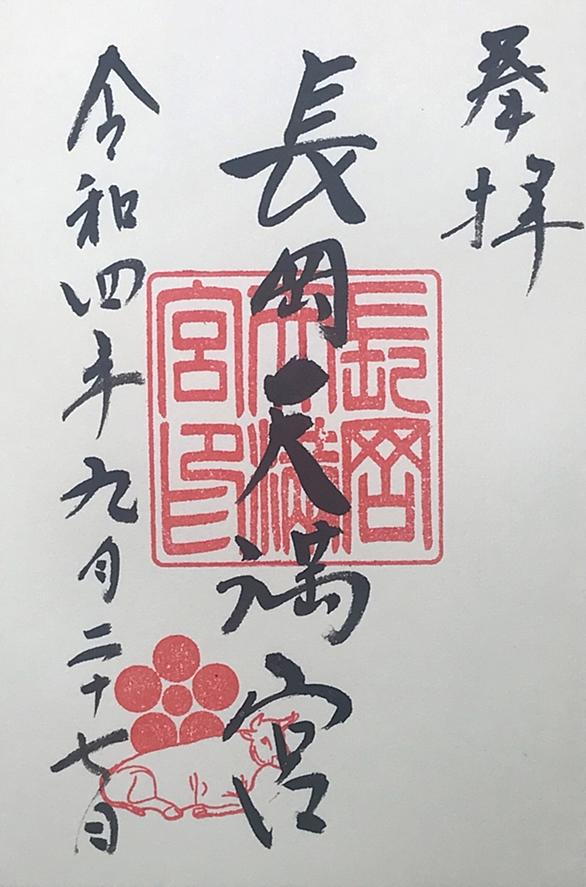 奉拝
長岡天満宮
長岡天満宮印
令和四年九月二十七日